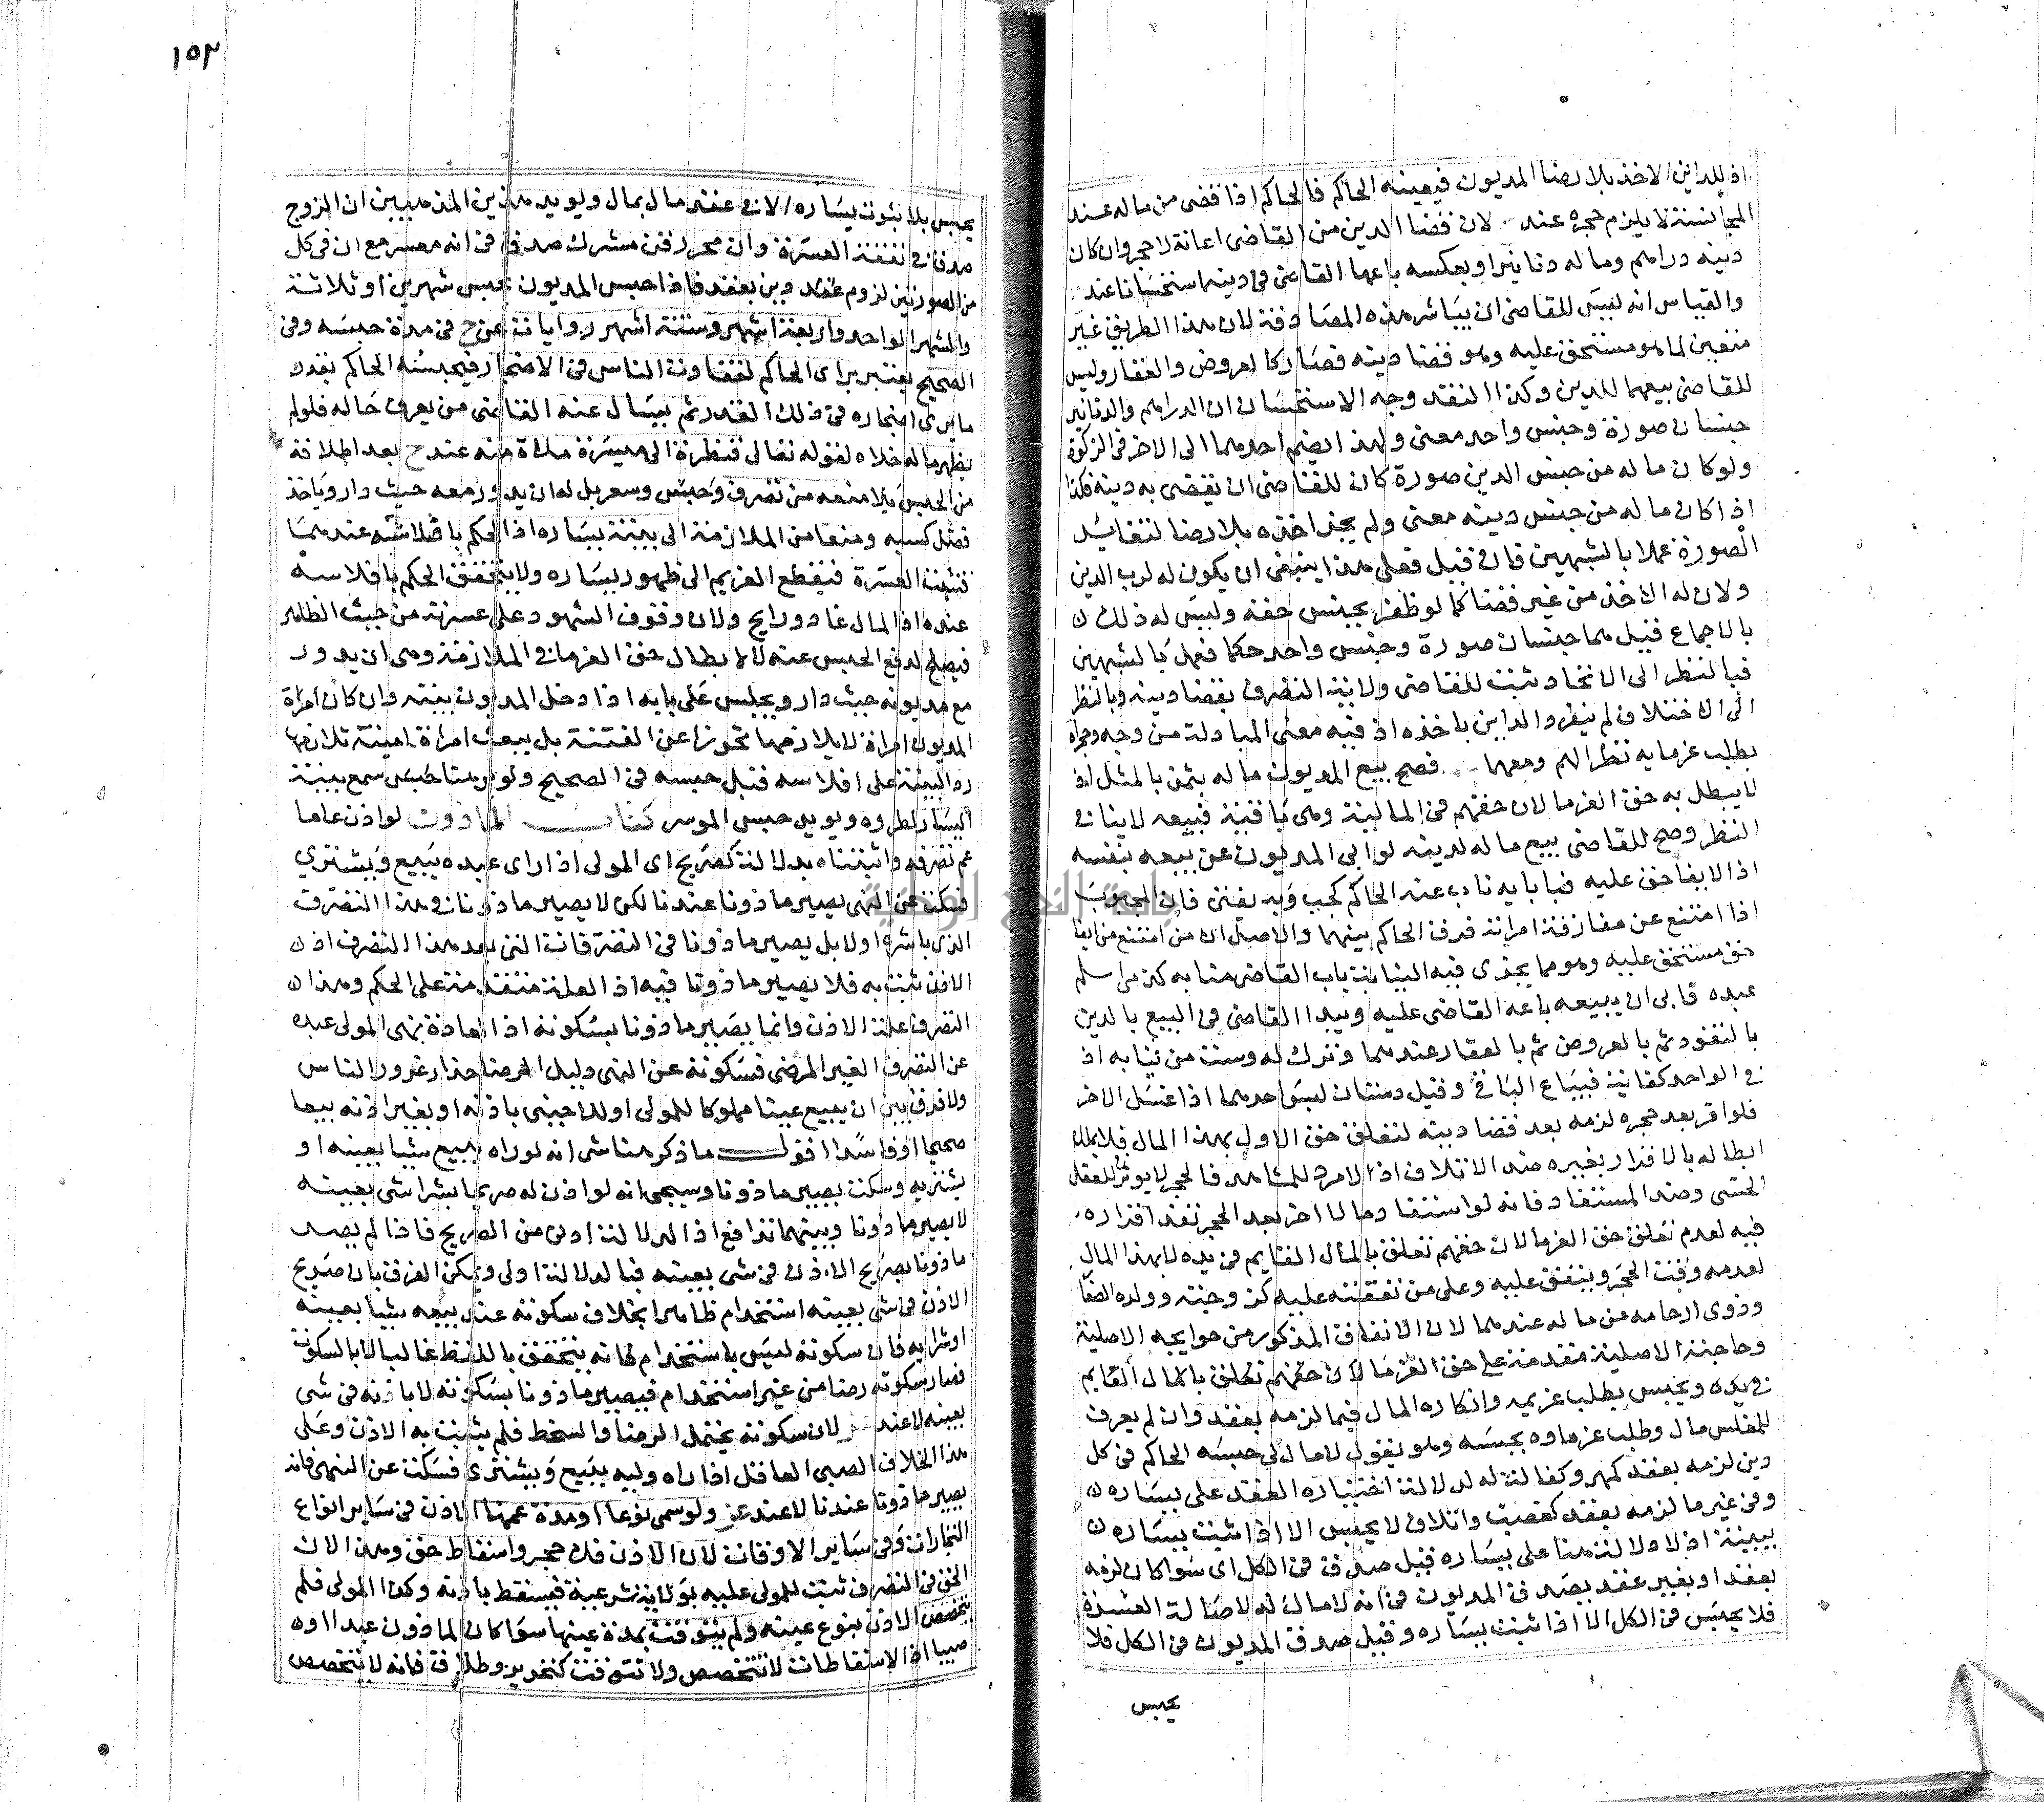 اذ للداين الاخذ بلا رضا المديون فيعينه الحاكم فالحاكم اذا قضى من ماله عند
المجانسة لا يلزم حجره عند لان قضا الدين من القاضى اعانة لا حجر وان كان
دينه دراهم وماله دنانير او بعكسه باعها القاضى فى دينه استحسانا عند
والقياس انه ليس للقاضى ان يباشر هذه المصارفة لان هذا الطريق غير
متعين لما هو مستحق عليه وهو قضا دينه فصار كالعروض والعقار وليس
للقاضى بيعهما للدين وكذا النقد وجه الاستحسان ان الدراهم والدنانير
جنسان صورة وجنس واحد معنى ولهذا يضم احدهما الى الاخر فى الزكوة
ولو كان ماله من جنس الدين صورة كان للقاضى ان يقضى به دينه فكذا
اذا كان ماله من جنس دينه معنى ولم يجز اخذه بلا رضا لتغاير
الصورة عملا بالشبهين فان قيل فعلى هذا ينبغى ان يكون له لرب الدين
ولان له الاخذ من غير قضا كما لو ظفر بجنس حقه وليس له ذلك
بالاجماع قيل هما جنسان صورة وجنس واحد حكما فعمل بالشبهين
فبالنظر الى الاتحاد ثبت للقاضى ولاية التصرف بقضا دينه وبالنظر
الى الاختلاف لم ينفرد الداين باخذه اذ فيه معنى المبادلة من وجه وحجره
بطلب غرمايه نظرا لهم ومعهما فصح بيع المديون ماله بثمن بالمثل اذ
لا يبطل به حق الغرما لان حقهم فى المالية وهى باقية فبيعه لا ينافى
النظر وصح للقاضى بيع ماله لدينه لو ابى المديون عن بيعه بنفسه
اذ الايفا حق عليه فبابايه ناب عنه الحاكم كجب وبه يفتى فان المجبوب
اذا امتنع عن مفارقة امراته فرق الحاكم بينهما والاصل ان من امتنع من ايفا
حق مستحق عليه وهو مما يجرى فيه النيابة ناب القاضى منابه كذمى اسلم
عبده فابى ان يبيعه باعه القاضى عليه ويبدا القاضى فى البيع بالدين
بالنقود ثم بالعروض ثم بالعقار عندهما وترك له وست من ثيابه اذ
فى الواحد كفاية فيباع الباقى وقيل دستان ليس احدهما اذا غسل الاخر
فلو اقر بعد حجره لزمه بعد قضا دينه لتعلق حق الاول بهذا المال فلا يملك
ابطاله بالاقرار بغيره ضد الاتلاف اذ الامرد للمشاهد فالحجر لا يوثر للفعل
الحسى وضد المستفاد فانه لو استفاد مالا اخر بعد الحجر نفذ اقراره
فيه لعدم تعلق حق الغرما لان حقهم تعلق بالمال القايم فى يده لا بهذا المال
لعدمه وقت الحجر وينفق عليه وعلى من نفقته عليه كزوجته وولده الصغا
وذوى ارحامه من ماله عندهما لان الانفاق المذكور من حوايجه الاصلية
وحاجته الاصلية مقدمة على حق الغرما لان حقهم تعلق بالمال القايم
فى يده ويحبس بطلب غريمه وانكاره المال فيما لزمه بعقد وان لم يعرف
للمفلس مال وطلب غرماوه بحبسه وهو يقول لا مال لى حبسه الحاكم فى كل
دين لزمه بعقد كمهر وكفالة له لدلالة اختياره العقد على يساره
وفى غير ما لزمه بعقد كغصب واتلاف لا يحبس الا اذا ثبت يساره
ببينة اذ لا دلالة هنا على يساره قيل صدق فى الكل اى سوا كان لزمه
بعقد او بغير عقد يصدق المديون فى انه لا مال له لاصالة العسرة
فلا يحبس فى الكل الا اذا ثبت يساره وقيل صدق المديون فى الكل فلا
يحبس
١٥٢
يحبس بلا ثبوت يساره الا فى عقد مال بمال ويويد هذين المذهبين ان الزوج
صدق فى نفقة العسرة وان محرر قن مشترك صدق فى انه معسر مع ان فى كل
من الصورتين لزوم عقد دين بعقد فاذا حبس المديون حبس شهرين او ثلاثة
والشهر الواحد واربعة اشهر وستة اشهر روايات عن ح فى مدة حبسه وفى
الصحيح يعتبر براى الحاكم لتفاوت الناس فى الاضجار فيحبسه الحاكم بقدر
ما يرى اضجاره فى ذلك القدر ثم يسال عنه القاضى من يعرف حاله فلو لم
يظهر ماله خلاه لقوله تعالى فنظرة الى ميسرة ملازمه عند ح بعد اطلاقه
من الحبس بلا منعه من تصرف وحبس وسفر بل له ان يدور معه حيث دار وياخذ
فضل كسبه ومنعا من الملازمة الى بينة يساره اذ الحكم بافلاسه عندهما
تثبت العسرة فينقطع الغريم الى ظهور يساره ولا يتحقق الحكم بافلاسه
عنده اذ المال غاد ورايح ولان وقوف الشهود على عسرته من حيث الظاهر
فيصلح لدفع الحبس عنه لا لابطال حق الغرما فى الملازمة وهى ان يدور
مع مديونه حيث دار ويجلس على بابه اذا دخل المديون بيته وان كان امراة
المديون امراة لا يلازمها تحوزا عن الفتنة بل يبعث امراة امينة تلازمها
رد البينة على افلاسه قبل حبسه فى الصحيح ولو برهنا حبس سمع بينة
اليسار لطروه ويويد حبس الموسر كتاب الماذون لو اذن عاما
عم تصرفه واثبتناه بدلالة كصريح اى المولى اذا راى عبده يبيع ويشترى
فسكت عن النهى يصير ماذونا عندنا لكن لا يصير ماذونا فى هذا التصرف
الذى باشره اولا بل يصير ماذونا فى التصرفات التى بعد هذا التصرف اذ
الاذن ثبت به فلا يصير ماذونا فيه اذ العلة متقدمة على الحكم وهذا
التصرف علة الاذن وانما يصير ماذونا بسكوته اذ العادة بنهى المولى عبده
عن التصرف الغير المرضى فسكوته عن النهى دليل الرضا حذار غرور الناس
ولا فرق بين ان يبيع عينا مملوكا للمولى او لاجنبى باذنه او بغير اذنه بيعا
صحيحا او فاسدا اقول ما ذكر هنا شى انه لو راه يبيع شيا بعينه او
يشتريه وسكت يصير ماذونا وسيجى انه لو اذن له صريحا بشرا شى بعينه
لا يصير ماذونا وبينهما تدافع اذ الدلالة ادنى من الصريح فاذا لم يصر
ماذونا بصريح الاذن فى شى بعينه فبالدلالة اولى ويمكن الفرق بان صريح
الاذن فى شى بعينه استخدام ظاهرا بخلاف سكوته عند بيعه شيا بعينه
او شرايه فان سكوته ليس باستخدام فانه يتحقق باللفظ غالبا لا بالسكوت
فصار سكوته رضا من غير استخدام فيصير ماذونا بسكوته لا باذنه فى شى
بعينه لا عند لان سكوته يحتمل الرضا والسخط فلم يثبت به الاذن وعلى
هذا الخلاف الصبى العاقل اذا راه وليه يبيع ويشترى فسكت عن النهى فانه
يصير ماذونا عندنا لا عند غز ولو سمى نوعا او مدة عمهما الاذن فى ساير انواع
التجارات وفى ساير الاوقات لان الاذن فك حجر واسقاط حق وهذا لان
الحق فى التصرف ثبت للمولى عليه بولاية شرعية فيسقط باذنه وكذا المولى فلم
يتخصص الاذن بنوع عينه ولم يتوقت بمدة عينها سوا كان الماذون عبدا او
صبيا اذ الاسقاطات لا تتخصص ولا تتوقت كتحرير وطلاق فانه لا يتخصص